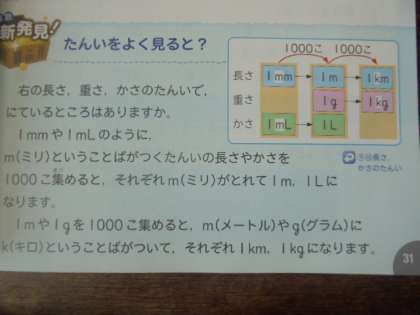 新発見!
たんいをよく見ると？
1000こ 1000こ
長さ 1mm 1m 1km
重さ 1g 1kg
かさ 1mL 1L
右の長さ，重さ，かさのたんいで，
にているところはありますか。
1mmや1mLのように，
m(ミリ)ということばがつくたんいの長さやかさを
1000こ集めると，それぞれm(ミリ)がとれて1m，1Lに
なります。
1mや1gを1000こ集めると，m(メートル)やg(グラム)に
k(キロ)ということばがついて，それぞれ1km，1kgになります。
長さ，
かさのたんい
31